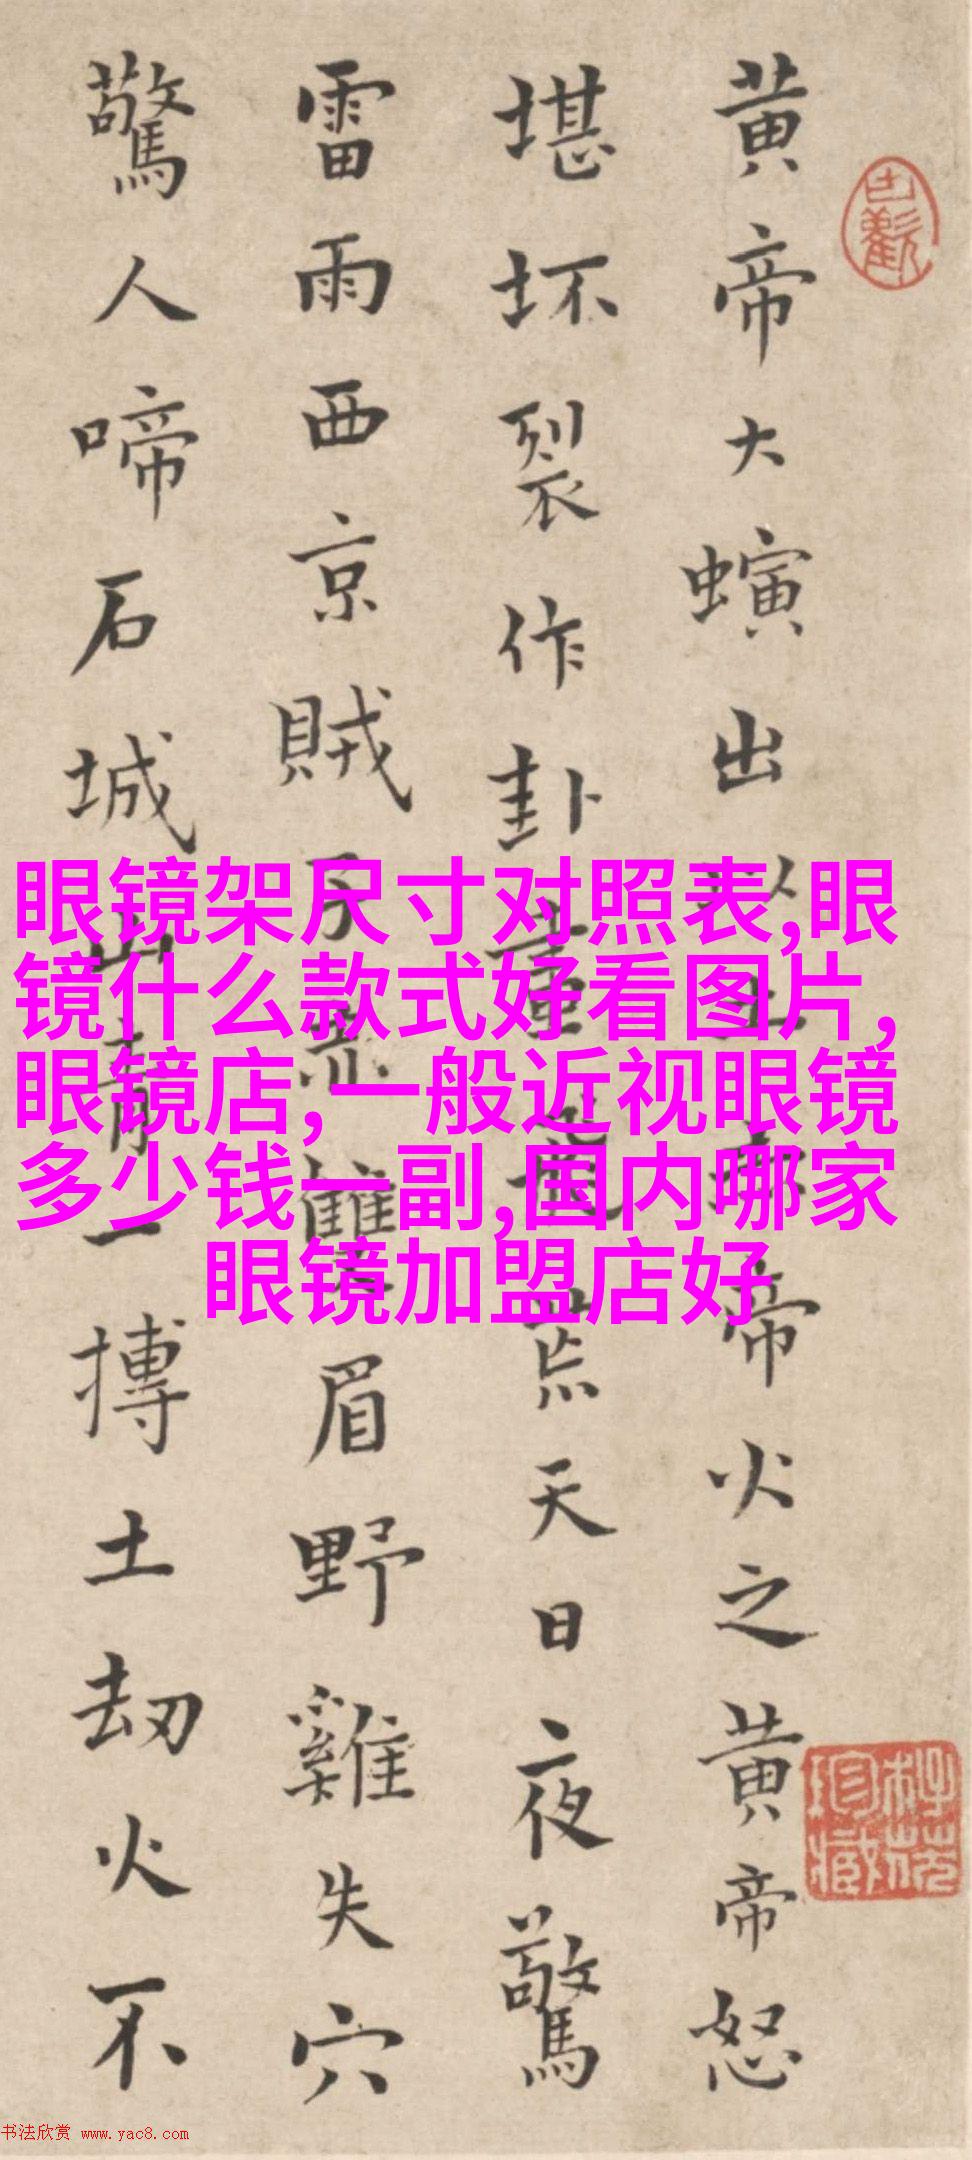 黄帝大螾出
帝火之黄帝怒
堪坏裂作卦
天日夜驚
雷雨西京賊
眉野雞失穴
驚人啼石城
山青一摶土劫火不
眼镜架尺寸对照表,眼
镜什么款式好看图片,
眼镜店,一般近视眼镜
多少钱一副,国内哪家
眼镜加盟店好
书法欣赏 www.yac8.com